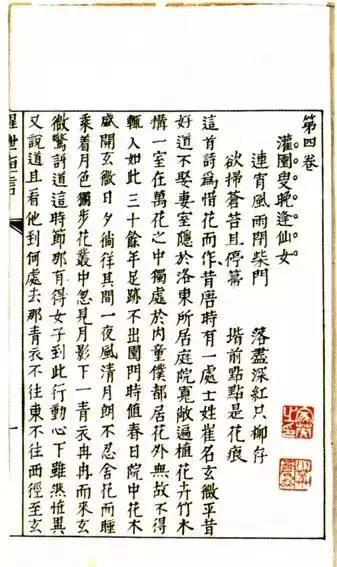 第四卷
灌園叟晚逢仙女
連宵風雨閉柴門　落盡深紅只柳存
欲掃蒼苔且停箒　堦前點點是花痕
這首詩爲惜花而作昔唐時有一處士姓崔名玄微平昔
好道不娶妻室隱於洛東所居庭院寬敞遍植花卉竹木
構一室在萬花之中獨處於內童僕都居花外無故不得
輒入如此三十餘年足跡不出園門時值春日院中花木
盛開玄微日夕徜徉其間一夜風清月朗不忍舍花而睡
乘着月色獨步花叢中忽見月影下一青衣冉冉而來玄
微驚訝道這時節那有得女子到此行動心下雖然恠異
又說道且看他到何處去那青衣不往東不往西徑至玄
醒世恒言